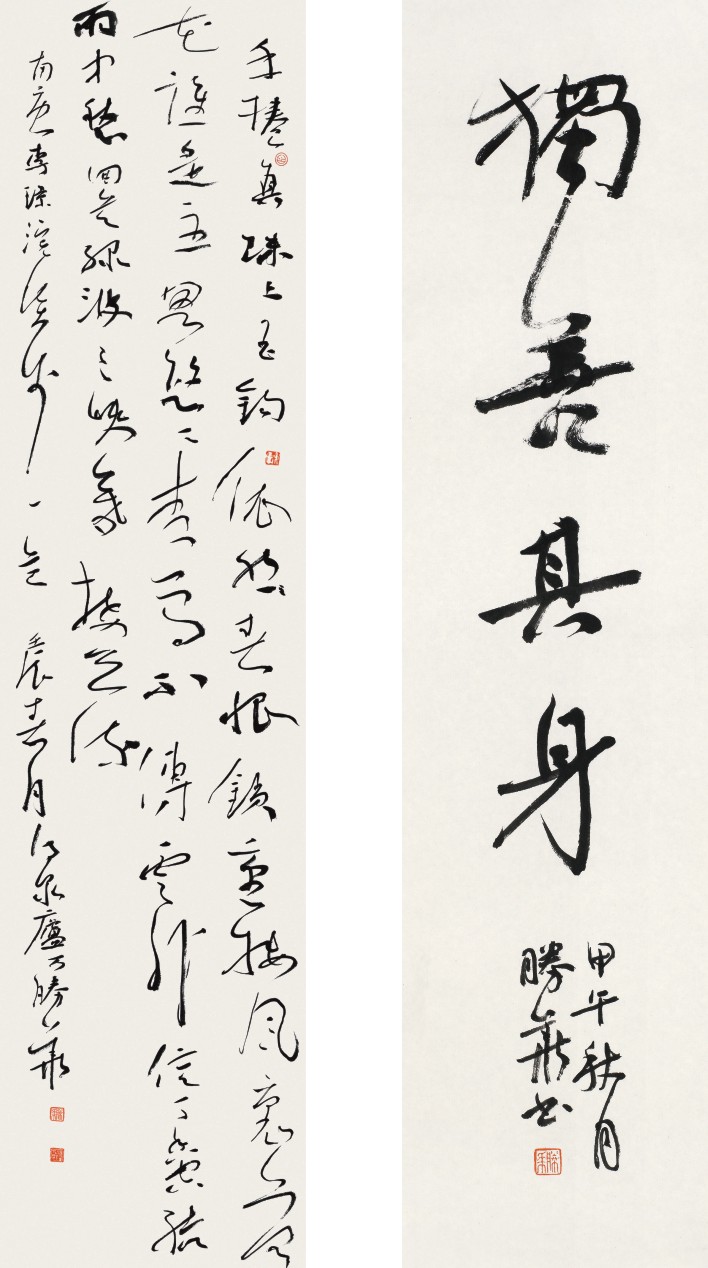 獨善其身
甲午秋月
勝華書
手捲真珠上玉鈎依然春恨鎖重樓風裏落
花誰是主思悠悠青鳥不傳雲外信丁香空結
雨中愁回首綠波三峽暮接天流
南唐李璟浣溪沙一首壬辰春月泉廬万勝華